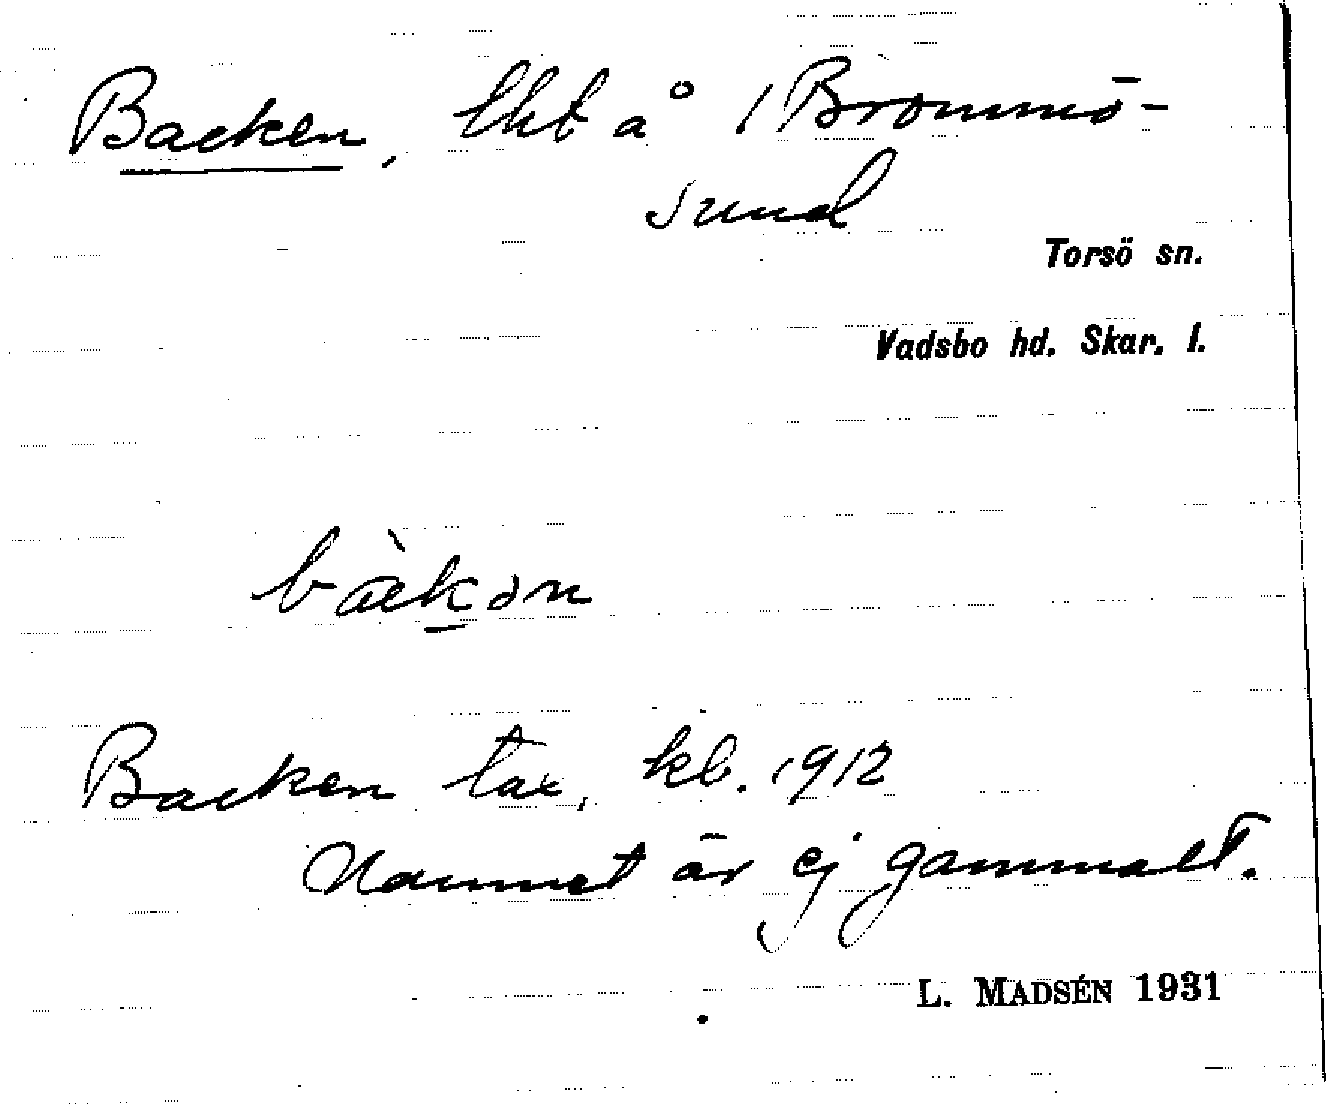 Backen, lht å 1 Brommö-
sund
Torsö sn.
Vadsbo hd. Skar. l.
bàkən
Backen tax. kb. 1912
Namnet är ej gammalt.
L. MADSÉN 1931